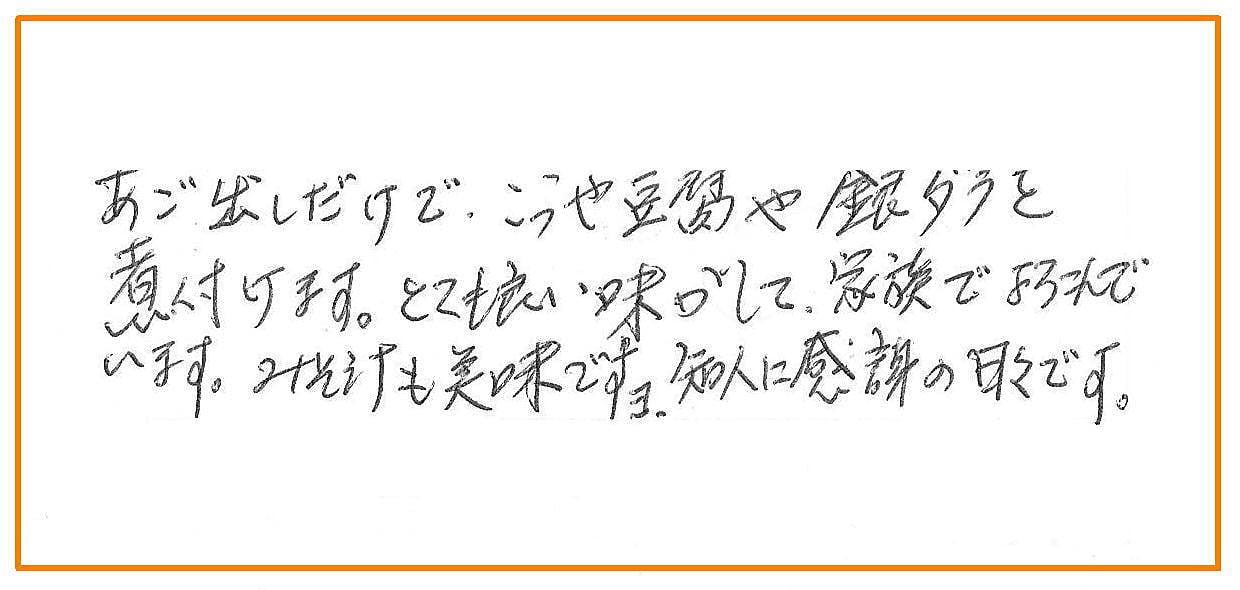 あご出しだけで、こうや豆腐や銀ダラを
煮付けます。とても良い味がして、家族でよろこんで
います。みそ汁も美味ですヨ、知人に感謝の日々です。